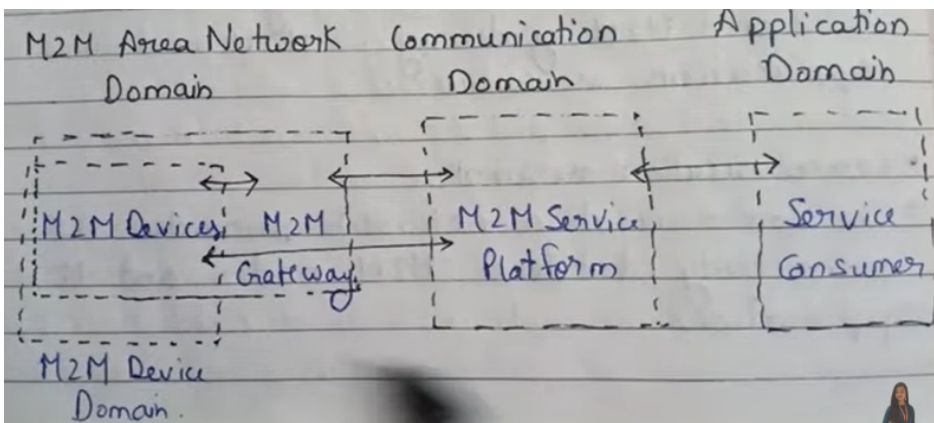 M2M Area Network
Domain
Communication
Domain
Application
Domain
M2M Devices
M2M
Gateway
M2M Service
Platform
Service
Consumer
M2M Device
Domain.